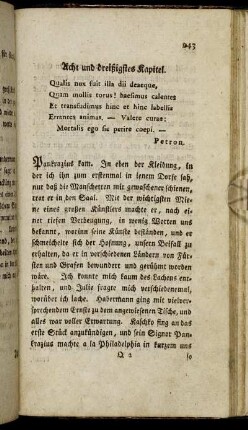 243
Acht und dreißigstes Kapitel.
Qualis nox fuit illa dii deaeque,
Quam mollis torus! haesimus calentes
Et transfudimus hinc et hinc labellis
Errantes animas. — Valete curae:
Mortalis ego sic perire coepi. —
Petron.
Pankrazius kam. In eben der Kleidung, in
der ich ihn zum erstenmal in jenem Dorfe sah,
nur daß die Manscheeten mit gewaschener schienen,
trat er in den Saal. Mit der wichtigsten Mie-
ne eines großen Künstlers machte er, nach ei-
ner tiefen Verbeugung, in wenig Worten uns
bekannt, warinn seine Künste bestånden, und er
schmeichelte sich der Hofnung, unsern Beifall zu
erhalten, da er in verschiedenen Ländern von Für-
sten und Grafen bewundert und gerühmt worden
wäre. Ich konnte mich kaum des Lachens ent-
halten, und Julie fragte mich verschiedenemal,
worüber ich lache. Habermann ging mit vielver-
sprechendem Ernste zu dem angewiesenen Tische, und
alles war voller Erwartung. Kaschko fing an das
erste Stück anzukündigen, und sein Signor Pan-
krazius machte a la Philadelphia in kurzem uns
Q 2
so